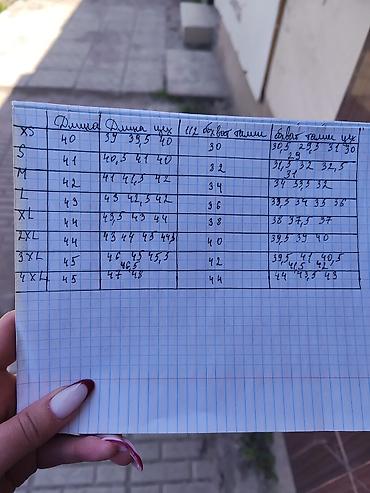 Длина Длина цех 1/2 обхват талии обхват талии цех
XS 40 39 39,5 40 30 30,5 29,5 31 30 29
S 41 40,5 41 40 32 31,5 32 32,5 31
M 42 41 41,5 42 34 34 33,5 32
L 43 43 42,5 42 36 35,5 34 35 36
XL 44 43,5 43 44 38 38 37,5 37
2XL 44 43 44 45 44,5 40 39,5 39 40
3XL 45 46 45 45,5 46,5 42 39,5 41 40,5 41,5 42
4XL 45 47 48 44 44 43,5 43